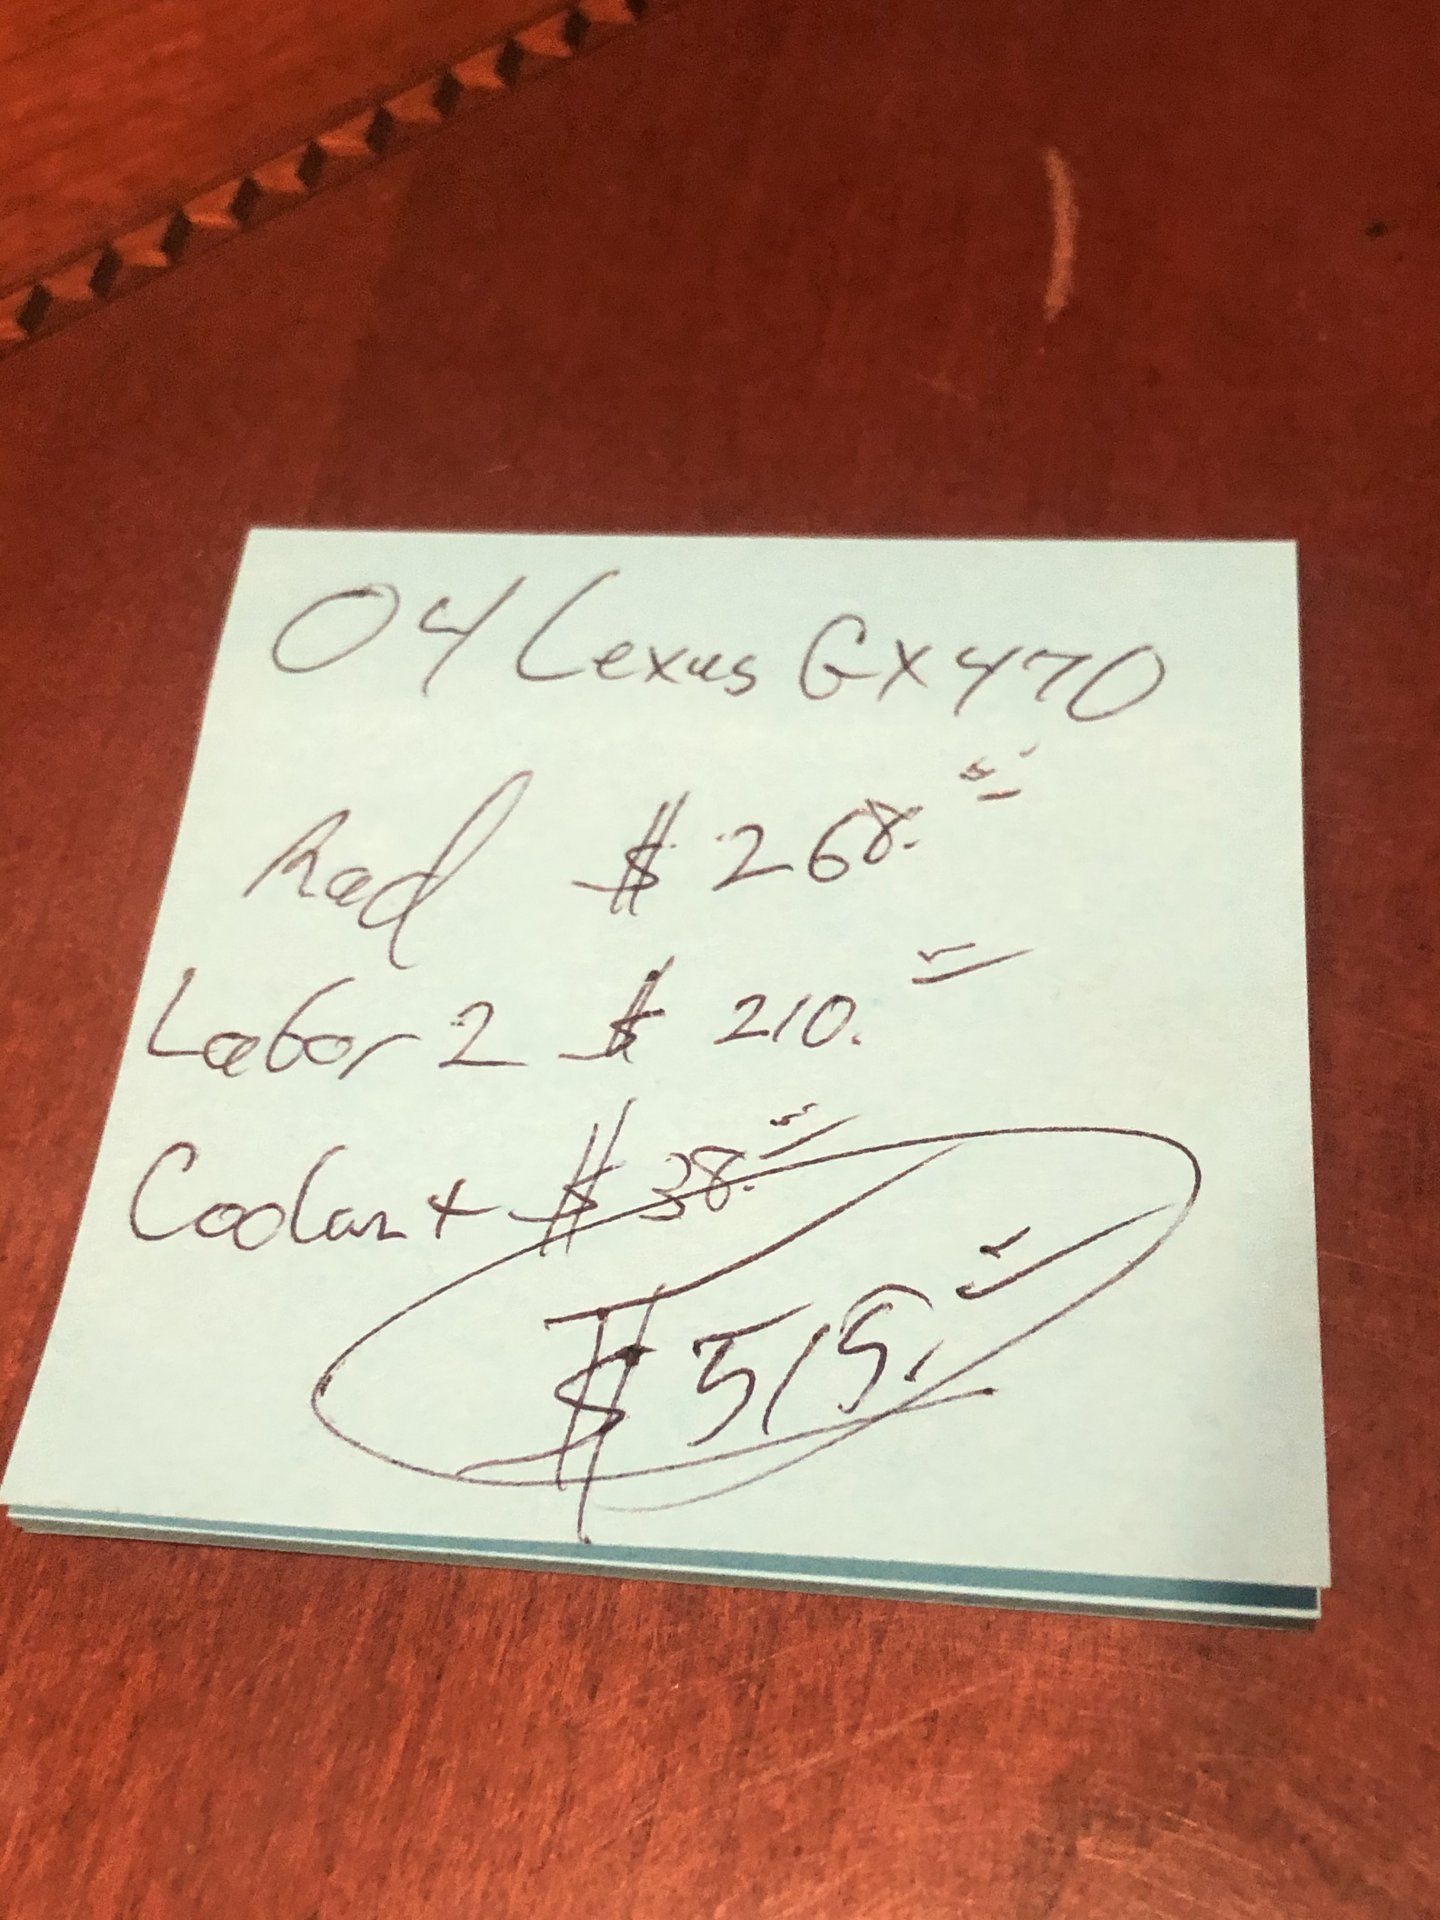 04 Lexus GX470
Rad $ 268.
Labor 2 $ 210.
Coolant $ 38.
$ 515.